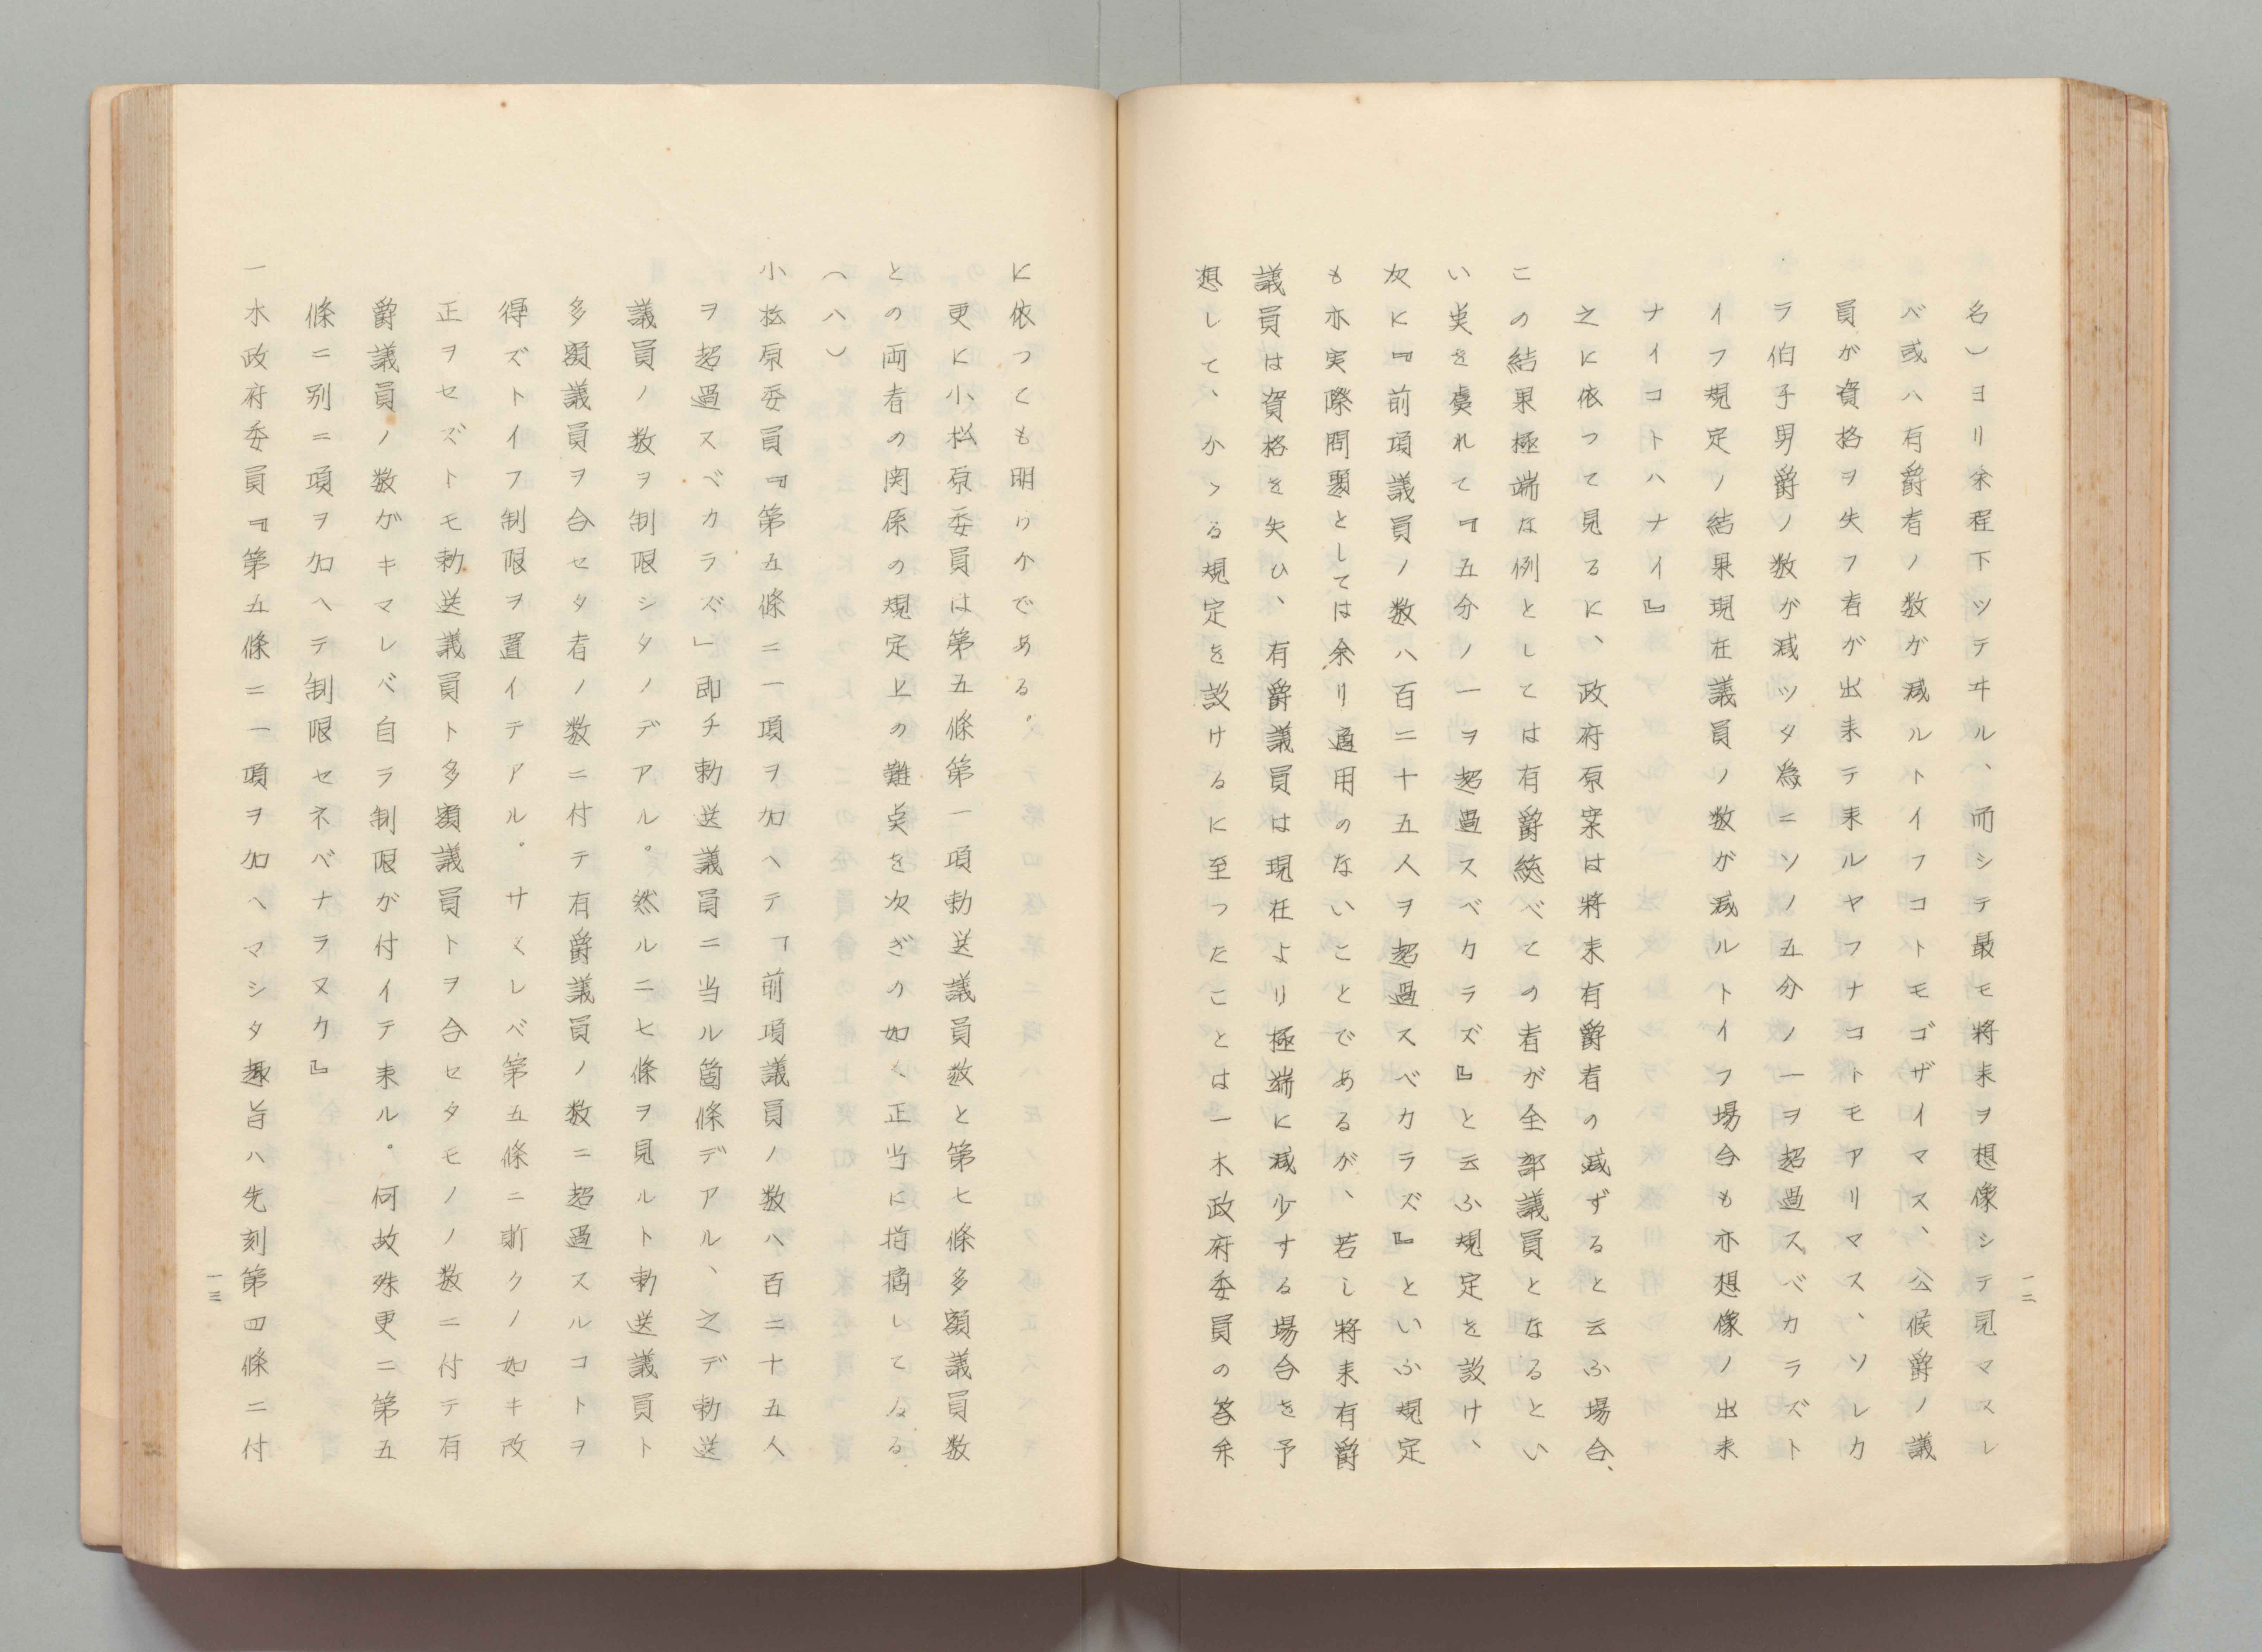 名)ヨリ余程下ツテヰル、而シテ最モ將来ヲ想像シテ見マスレ
バ或ハ有爵者ノ数ガ減ルトイフコトモゴザイマス、公候爵ノ議
員が資格ヲ失フ者が出来テ来ルヤフナコトモアリマス、ソレカ
ラ伯子男爵ノ数が減ツタ為ニソノ五分ノ一ヲ超過スベカラズト
イフ規定ノ結果現在議員ノ数が減ルトイフ場合も亦想像ノ出来
ナイコトハナイ』
之に依つて見るに、政府原案は將来有爵者の減ずると云ふ場合、
この結果極端な例としては有爵総べての者が全部議員となるとい
い実を虞れて『五分ノ一ヲ超過スベカラズ』と云ふ規定を設け、
次に『前項議員ノ数ハ百二十五人ヲ超過スベカラズ』といふ規定
も亦実際問題としては余り適用のないことであるが、若し將来有爵
議員は資格を失ひ、有爵議員は現在より極端に減少する場合を予
想して、かゝる規定を設けるに至つたことは一木政府委員の答弁
一二
に依つても明らかである。
更に小松原委員は第五條第一項勅送議員数と第七條多額議員数
との両者の関係の規定上の難点を次ぎの如く正当に指摘してゐる
(八)
小松原委員『第五條ニ一項ヲ加ヘテ「前項議員ノ数ハ百二十五人
ヲ超過スベカラズ」即チ勅送議員ニ当ル箇條デアル、之デ勅送
議員ノ数ヲ制限シタノデアル。然ルニ七條ヲ見ルト勅送議員ト
多額議員ヲ合セタ者ノ数ニ付テ有爵議員ノ数ニ超過スルコトヲ
得ズトイフ制限ヲ置イテアル。サくレバ第五條ニ斯クノ如キ改
正ヲセズトモ勅送議員ト多額議員トヲ合セタモノノ数ニ付テ有
爵議員ノ数ガキマレバ自ラ制限が付イテ来ル。何故殊更ニ第五
條ニ別ニ項ヲ加ヘテ制限セネバナラヌカ』
一木政府委員『第五條ニ一項ヲ加ヘマシタ趣旨ハ先刻第四條ニ付
一三